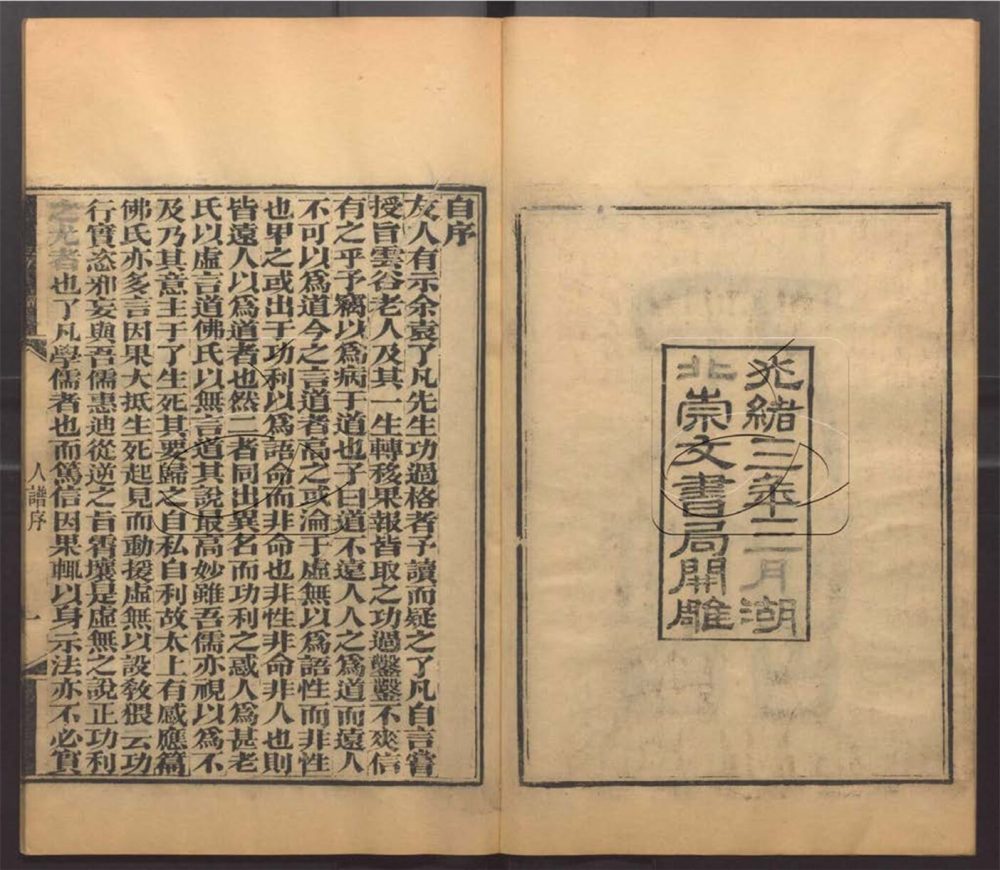 光緒三年三月湖
北崇文書局開雕
自序
友人有示余袁了凡先生功過格者予讀而疑之了凡自言嘗
授旨雲谷老人及其一生轉移果報皆取之功過鑿鑿不爽信
有之乎予竊以爲病于道也子曰道不遠人人之爲道而遠人
不可以爲道今之言道者高之或淪于虛無以爲語性而非性
也卑之或出于功利以爲語命而非命也非性非命非人也則
皆遠人以爲道者也然二者同出異名而功利之惑人爲甚老
氏以虛言道佛氏以無言道其說最高妙雖吾儒亦視以爲不
及乃其意主于了生死其要歸之自私自利故太上有感應篇
佛氏亦多言因果大抵生死起見而動援虛無以設敎猥云功
行實恣邪妄與吾儒惠迪從逆之旨霄壤是虛無之說正功利
之尤者也了凡學儒者也而篤信因果輒以身示法亦不必實
人譜序
一